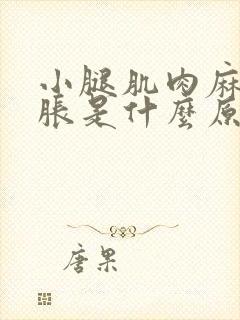 小腿肌肉麻
脹是什麼原
唐果